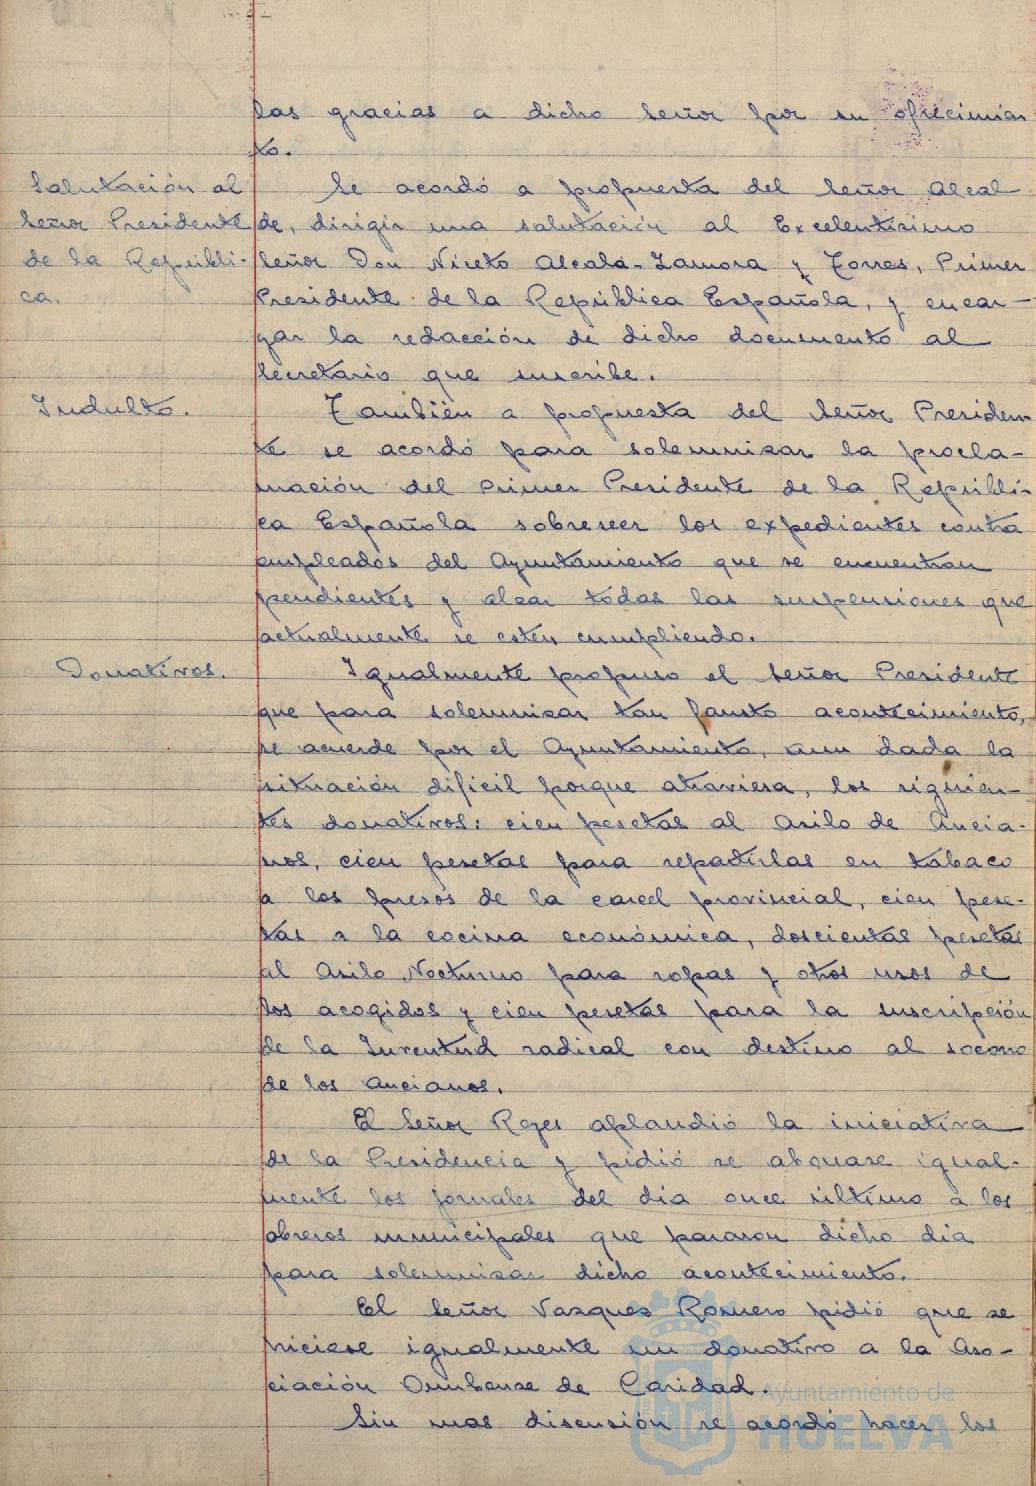 las gracias a dicho señor por su ofrecimien
to.
Salutación al
señor Presidente
de la Repúbli-
ca.
Se acordó a propuesta del señor Alcal
de, dirigir una salutación al Excelentísimo
señor Don Niceto Alcalá-Zamora y Torres, Primer
Presidente de la República Española, y encar-
gar la redacción de dicho documento al
Secretario que suscribe.
Indulto.
También a propuesta del señor Presiden-
te se acordó para solemnizar la procla-
mación del primer Presidente de la Repúbli-
ca Española sobreseer los expedientes contra
empleados del Ayuntamiento que se encuentran
pendientes y alzar todas las suspensiones que
actualmente se estén cumpliendo.
Donativos.
Igualmente propuso el señor Presidente
que para solemnizar tan fausto acontecimiento,
se acuerde por el Ayuntamiento, aun dada la
situación difícil porque atraviesa, los siguien-
tes donativos: cien pesetas al Asilo de Ancia-
nos, cien pesetas para repartirlas en tabaco
a los presos de la carcel provincial, cien pese-
tas a la cocina económica, doscientas pesetas
al Asilo Nocturno para ropas y otros usos de
los acogidos y cien pesetas para la suscripción
de la Juventud radical con destino al socorro
de los ancianos.
El Señor Roges aplaudió la iniciativa
de la Presidencia y pidió se abonase igual-
mente los jornales del dia once último a los
obreros municipales que pararon dicho dia
para solemnizar dicho acontecimiento.
El señor Vazquez Romero pidió que se
hiciese igualmente un donativo a la Aso-
ciación Onubense de Caridad.
Sin mas discusión se acordó hacer los
Ayuntamiento de
HUELVA